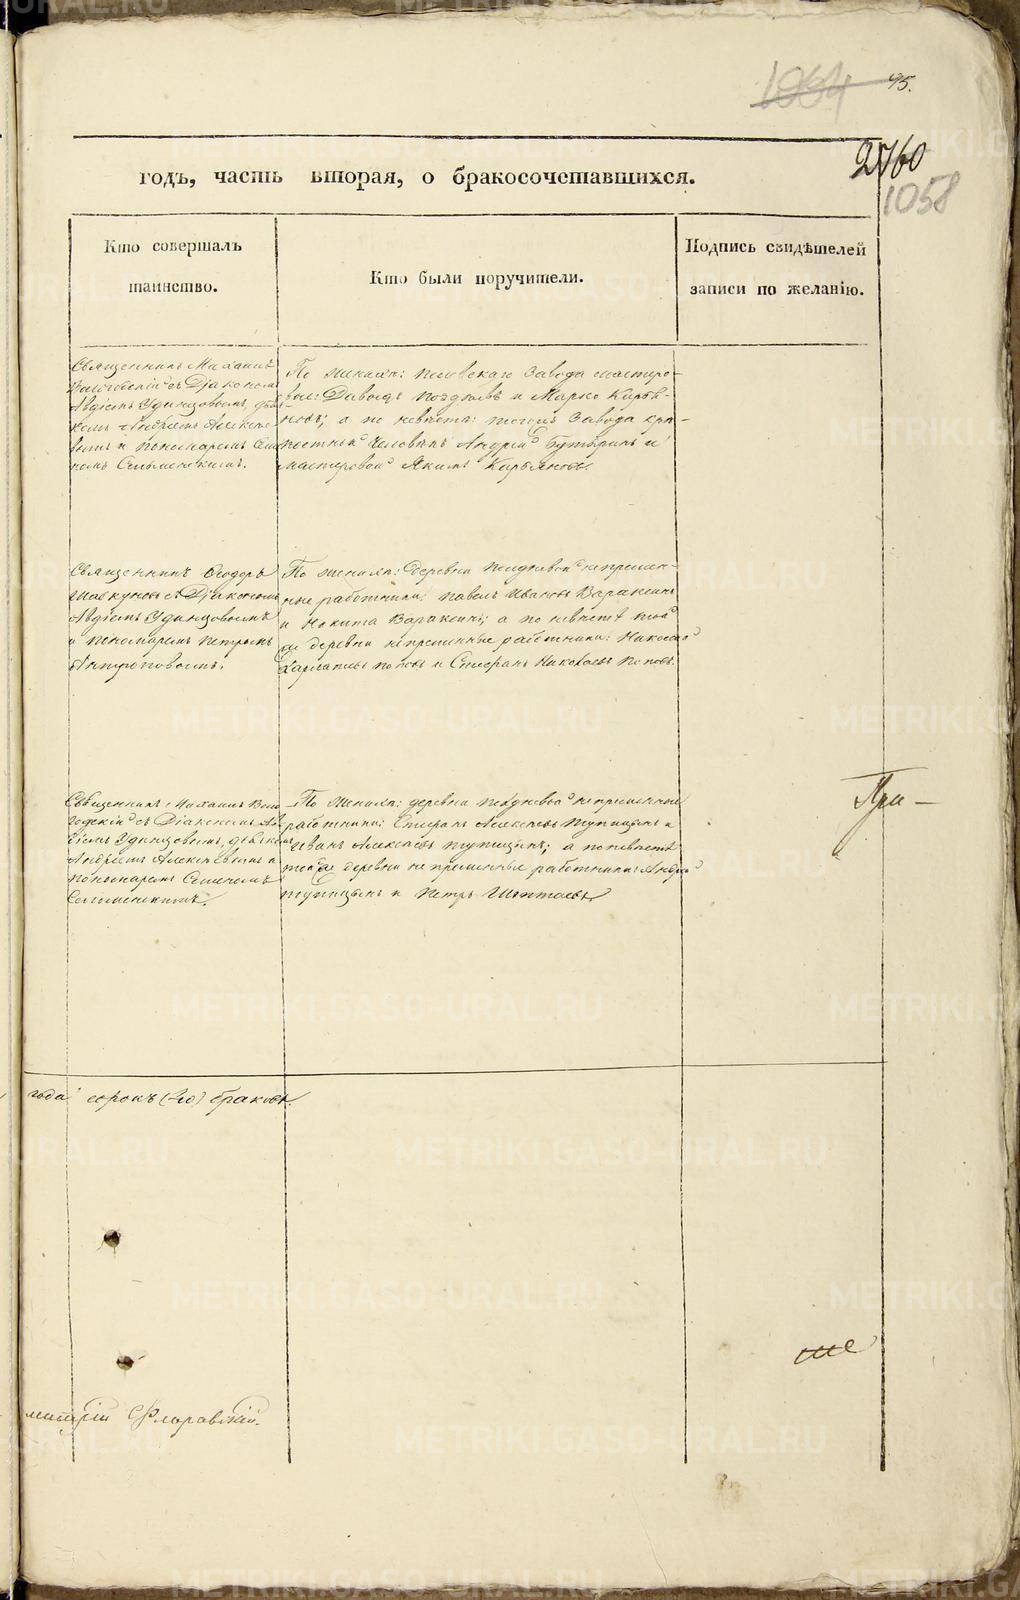 1064
45.
2760
1058
годъ, часть вторая, о бракосочетавшихся.
Кто совершалъ
таинство.
Кто были поручители.
Подпись свидѣтелей
записи по желанію.
Священникъ Михаилъ
съ Діакономъ
Авдіемъ Удинцовымъ,
Андреемъ Алексѣе-
вымъ и пономаремъ
По женихѣ: завода мастеро-
вые: Давыдъ Поздѣевъ и Марко Карья-
новъ; а по невѣстѣ: того же завода крѣ-
постный человѣкъ Андрей Бутыринъ и
мастеровой Якимъ Карьяновъ.
Священникъ Ѳеодоръ
Шавкуновъ съ Діакономъ
Авдіемъ Удинцовымъ
и пономаремъ Петромъ
Антроповымъ.
По женихѣ: деревни непремен-
ные работники: Павелъ Ивановъ Вараксинъ
и Никита Вараксинъ; а по невѣстѣ той
же деревни непременные работники: Николай
Харлампіевъ Поповъ и Стефанъ Николаевъ Поповъ.
Священникъ Михаилъ Воло-
годскій съ Діакономъ Ав-
діемъ Удинцовымъ, дьячкомъ
Андреемъ Алексѣевымъ и
пономаремъ Симеономъ
По женихѣ: деревни непременные
работники: Стефанъ Алексѣевъ Тупицынъ и
Иванъ Алексѣевъ Тупицынъ; а по невѣстѣ
той же деревни непременные работники: Андрей
Тупицынъ и Петръ
При—
года сорокъ (40) браковъ.
ше
Флоравскій.
METRIKI.GASO-URAL.RU